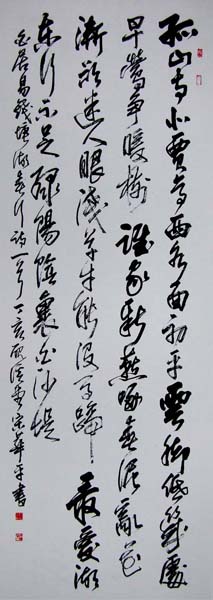 孤山寺北賈亭西水面初平雲脚低幾處
早鶯爭暖樹誰家新燕啄春泥亂花
漸欲迷人眼淺草才能没馬蹄最愛湖
東行不足緑陽陰裏白沙堤
白居易錢塘湖春行詩一首丁亥宋華平書